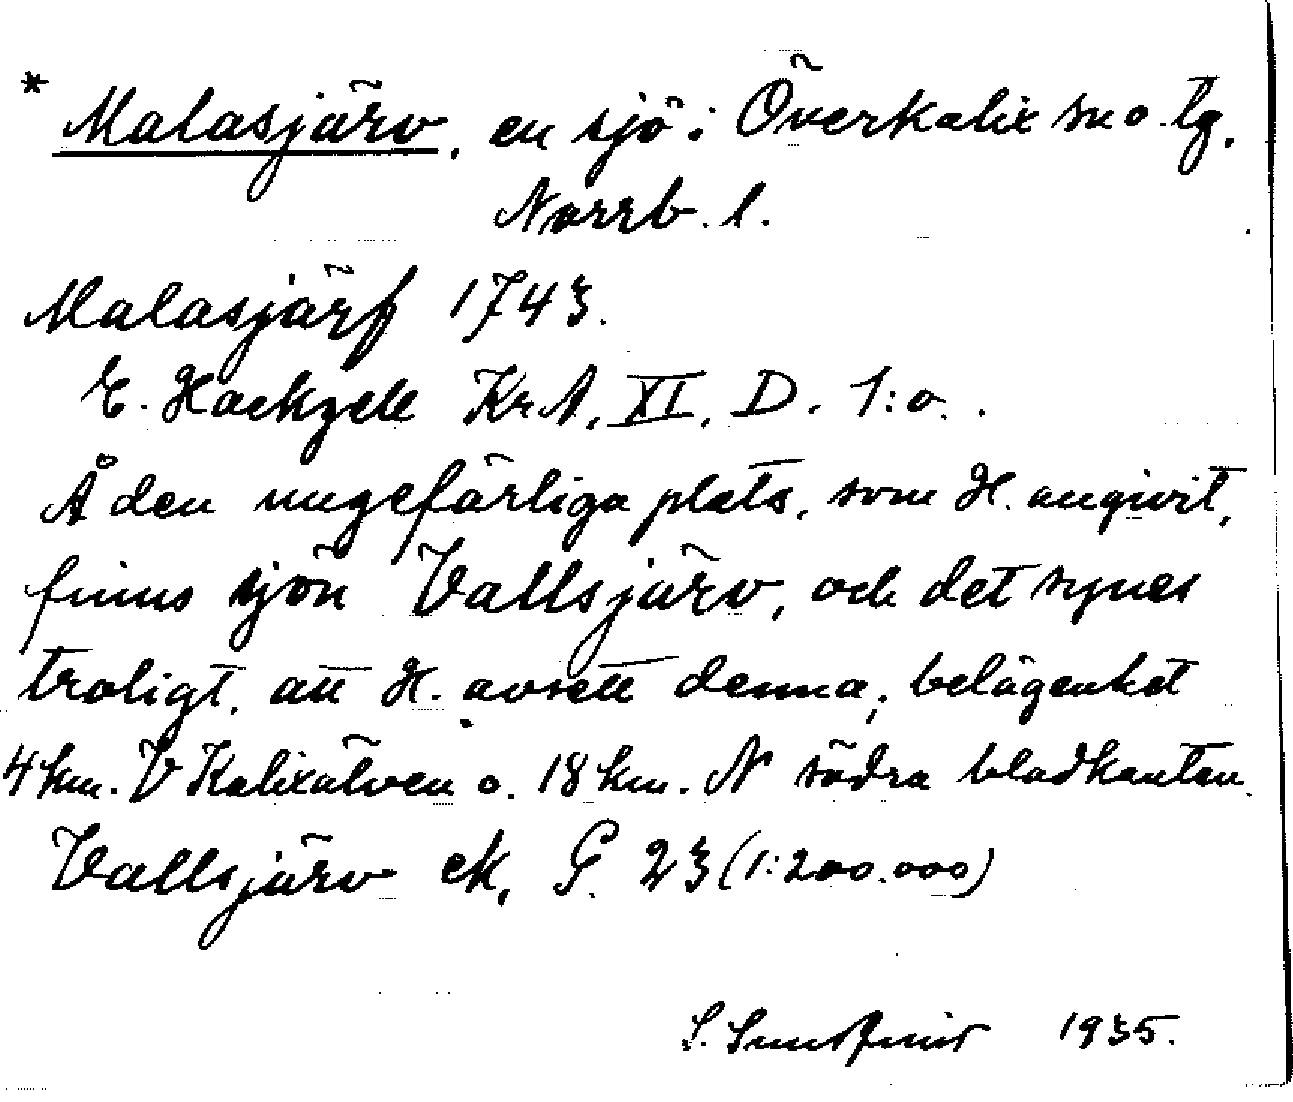 * Malasjärv, en sjö i Överkalix sn o. tg.
Norrb. l.
Malasjärf 1743.
E. Hackzell KrA. XI. D. 1:a.
Å den ungefärliga plats, som H. angivit,
finns sjön Vallsjärv, och det synes
troligt, att H. avsett denna; belägenhet
4 km. V Kalixälven o. 18 km. N södra bladkanten.
Vallsjärv ek. G. 23 (1:200.000)
S. 1935.